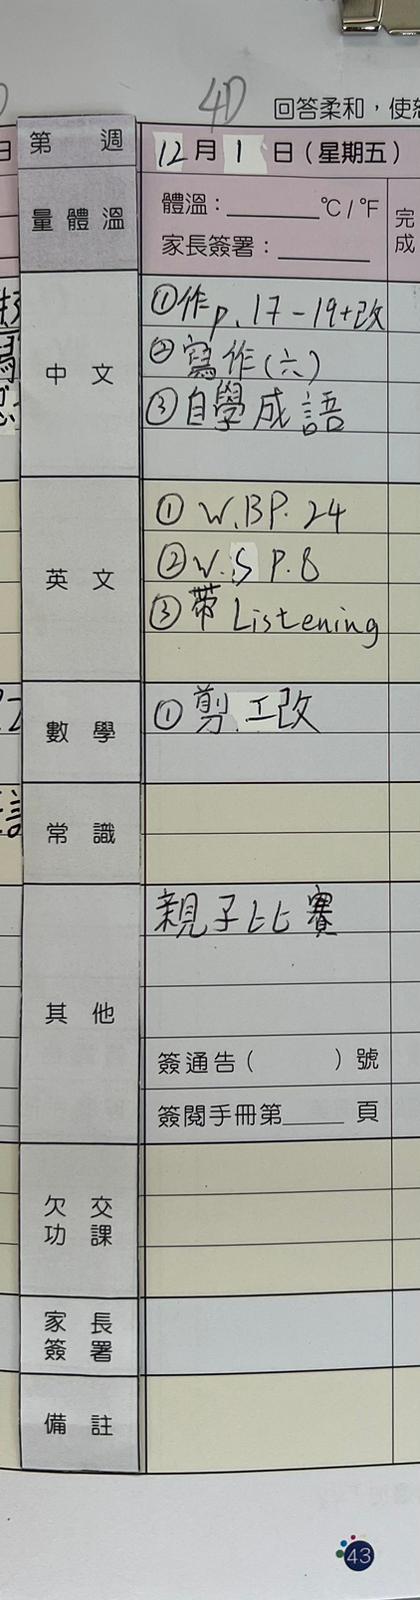 4D
回答柔和，使怒
第 週
12月1日（星期五）
量體溫
體溫：______℃/℉
家長簽署：______
完成
中文
①作p.17-19+改
②寫作(六)
③自學成語
英文
① W.B P. 24
②W.S P.8
③帶 Listening
數學
①剪.工改
常識
其他
親子比賽
簽通告（ ）號
簽閱手冊第____頁
欠交功課
家長簽署
備註
43